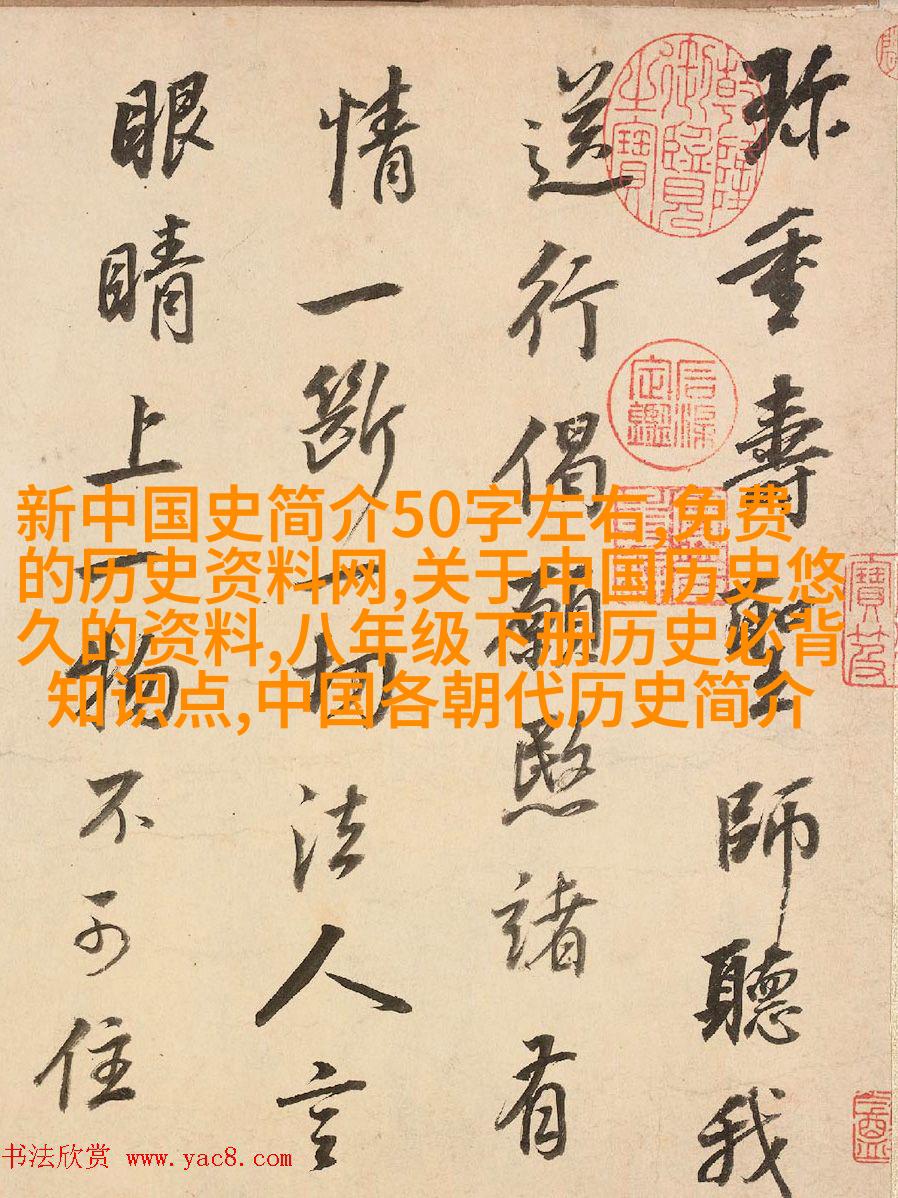 弥重壽聖師聽我
送行偈願愍諸有
情一斷一切法人言
眼睛上一物不可住
乾隆御覽之寶
石渠定鑑
寶笈
新中国史简介50字左右,免费
的历史资料网,关于中国历史悠
久的资料,八年级下册历史必背
知识点,中国各朝代历史简介
书法欣赏 www.yac8.com